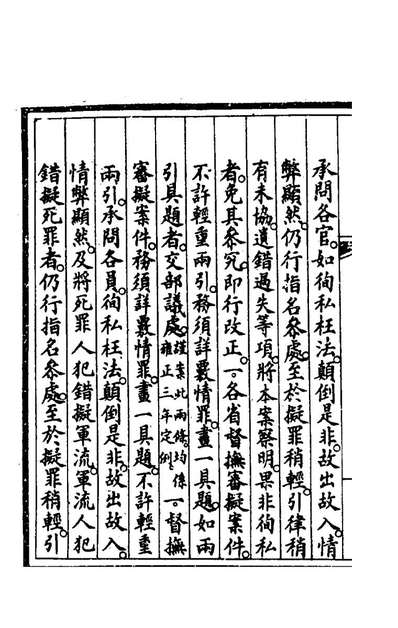 承問各官。如徇私枉法。顛倒是非。故出故入。情
弊顯然。仍行指名參處。至於擬罪稍輕。引律稍
有未協。遺錯過失等項。將本案察明。果非徇私
者。免其參究。即行改正。一。各省督撫審擬案件。
不許輕重兩引。務須詳覈情罪。畫一具題。如兩
引具題者。交部議處。謹案此兩條。均係雍正三年定例。一。督撫
審擬案件。務須詳覈情罪。畫一具題。不許輕重
兩引。承問各員。徇私枉法。顛倒是非。故出故入。
情弊顯然。及將死罪人犯錯擬軍流。軍流人犯
錯擬死罪者。仍行指名參處。至於擬罪稍輕。引